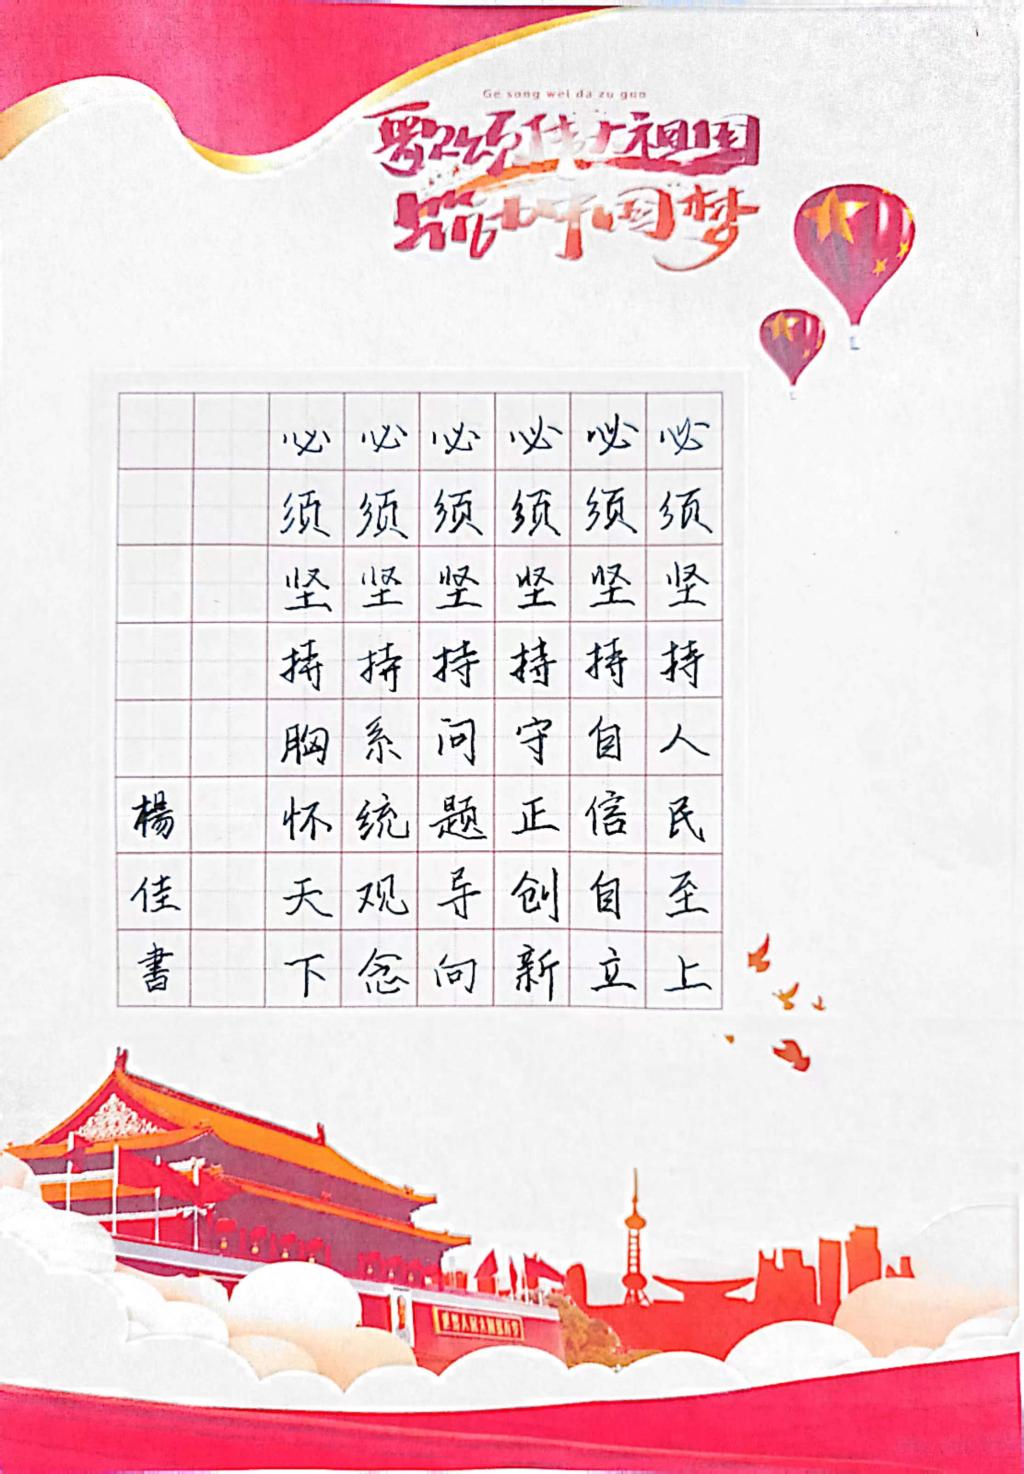 Ge song wei da zu guo
歌颂伟大祖国
筑中国梦
必须坚持人民至上
必须坚持自信自立
必须坚持守正创新
必须坚持问题导向
必须坚持系统观念
必须坚持胸怀天下
楊佳書